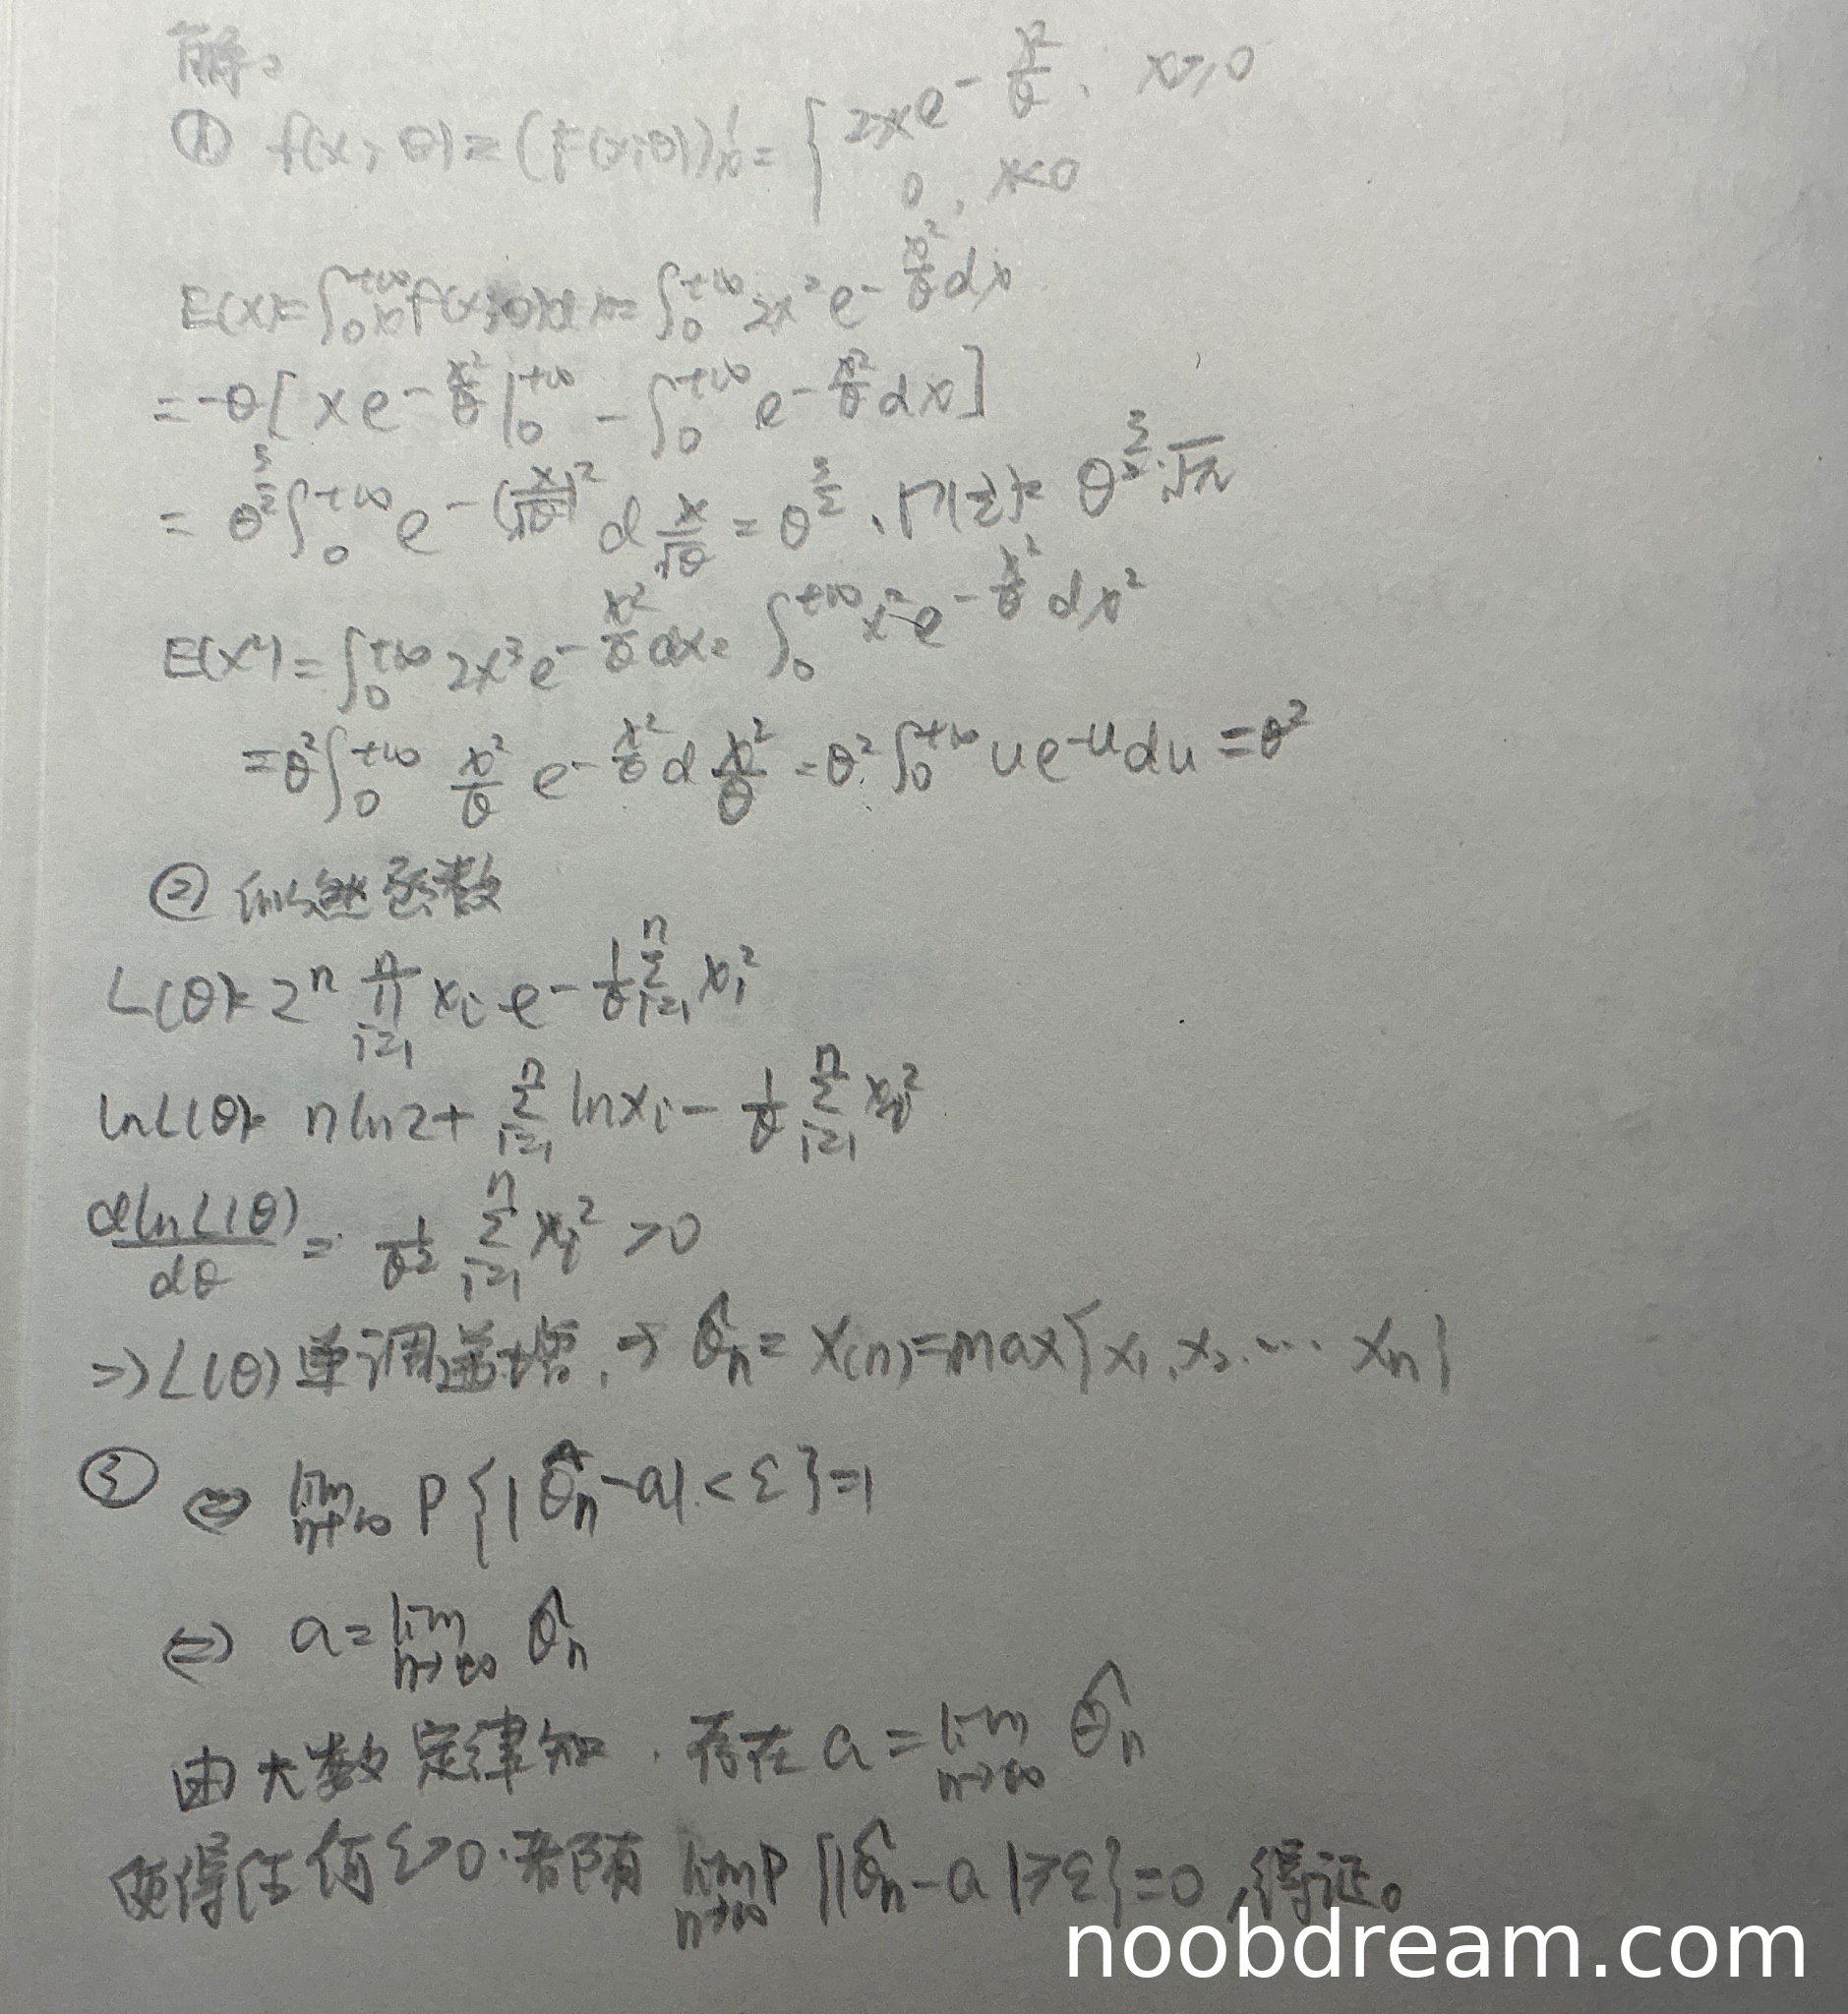 解:
① f(x,θ)=(F(x;θ))'ₓ= { 2xe^{-x²/θ}, x≥0
0, x<0
E(X)=∫₀^{+∞} xf(x;θ)dx=∫₀^{+∞} 2x²e^{-x²/θ}dx
=-θ[xe^{-x²/θ}|₀^{+∞} - ∫₀^{+∞} e^{-x²/θ}dx]
= θ^{3/2}∫₀^{+∞} e^{-(x/√θ)²} d x/√θ = θ^{3/2}·Γ(½)= θ^{3/2}·√π
E(X²)=∫₀^{+∞} 2x³e^{-x²/θ}dx=∫₀^{+∞} x²e^{-x²/θ}dx²
=θ²∫₀^{+∞} x²/θ e^{-x²/θ} d x²/θ = θ²∫₀^{+∞} ue^{-u}du=θ²
② 似然函数
L(θ)=2ⁿ ∏_{i=1}^{n} xᵢ e^{-1/θ ∑_{i=1}^{n} xᵢ²}
lnL(θ)= nln2+ ∑_{i=1}^{n} lnxᵢ - 1/θ ∑_{i=1}^{n} xᵢ²
dlnL(θ)/dθ = 1/θ² ∑_{i=1}^{n} xᵢ² >0
⇒L(θ)单调递增,⇒ θ̂ₙ=X₍ₙ₎=max{x₁,x₂,…xₙ}
③ ⇔ lim_{n→∞} P{|θ̂ₙ-a|<ε}=1
⇔ a=lim_{n→∞} θ̂ₙ
由大数定律知,存在a=lim_{n→∞} θ̂ₙ
使得任何ε>0.都有 lim_{n→∞} P{|θ̂ₙ-a|≥ε}=0,得证。
noobdream.com